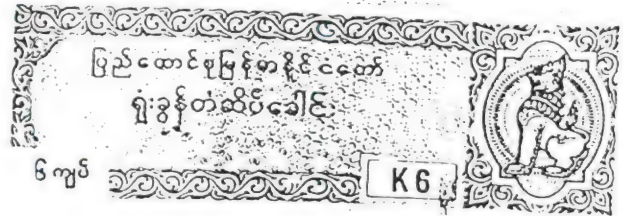 ပြည်ထောင်စုမြန်မာနိုင်ငံတော်
ရုံးခွန်တံဆိပ်ခေါင်း
၆ ကျပ်
K 6